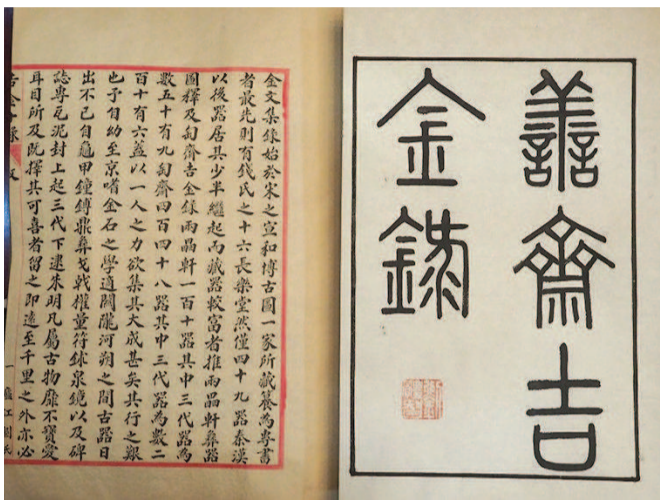 譱齋吉
金錄
金文集錄始於宋之宣和博古圖一家所藏纂為專書
者最先則有錢氏之十六長樂堂然僅四十九器秦漢
以後器居其少半繼起而藏器較富者推兩罍軒彝器
圖釋及匋齋吉金錄兩罍軒一百十器其中三代器為
數五十有九匋齋四百四十八器其中三代器為數二
百十有六蓋以一人之力欲集其大成甚矣其行之艱
也予自幼至京嗜金石之學適關隴河朔之間古器日
出不已自龜甲鐘鎛鼎彝戈戟權量符鉥泉鏡以及碑
誌專瓦泥封上起三代下逮朱明凡屬古物靡不寶愛
耳目所及既擇其可喜者留之即遠至千里之外亦必
一 廬江劉氏